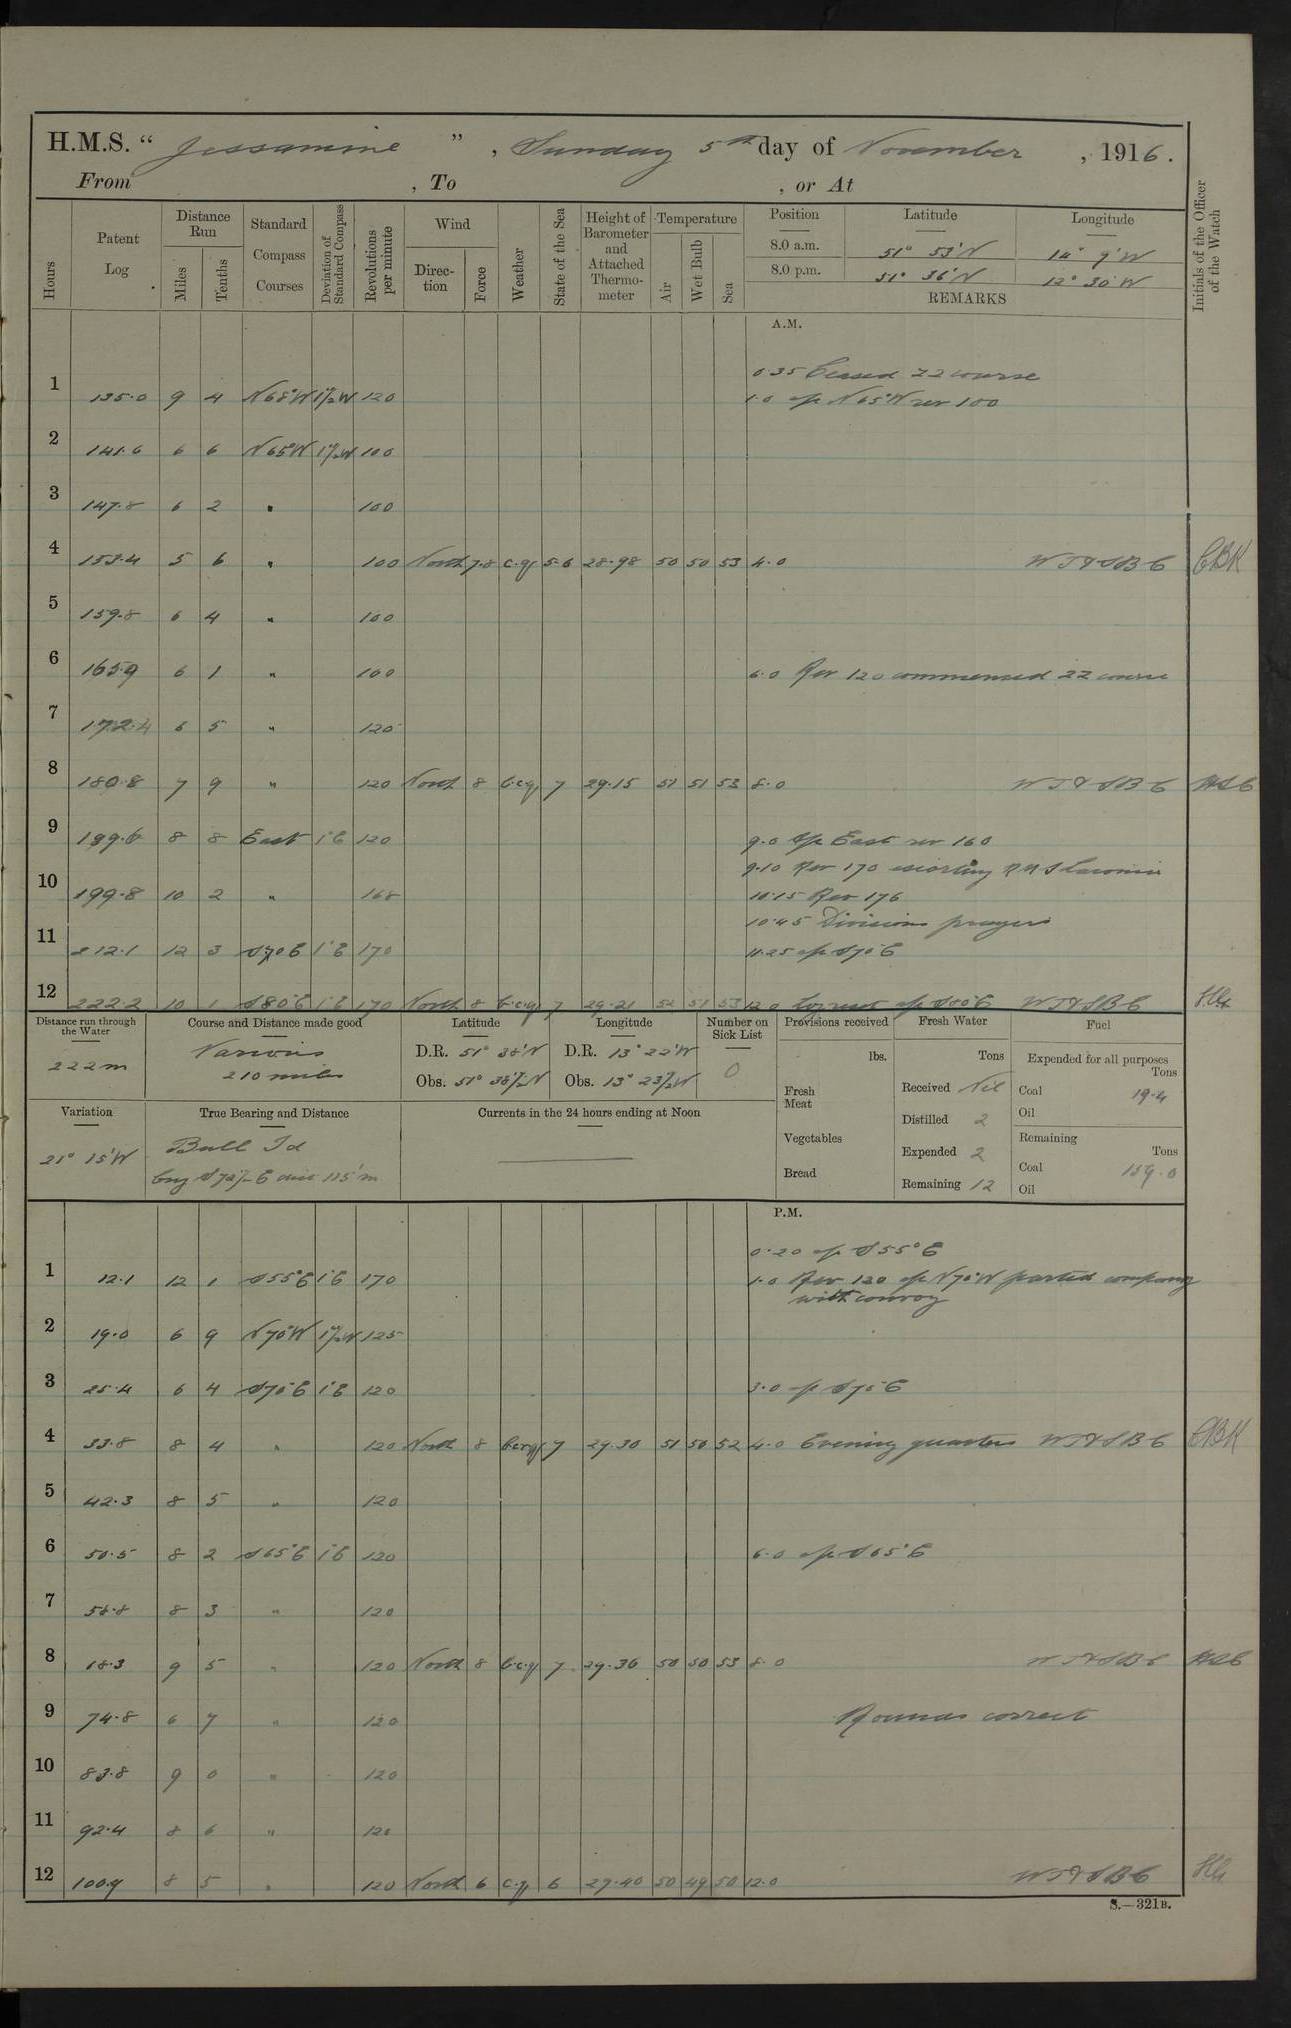 H.M.S. “ Jessamine ” , Sunday 5th day of November , 1916 .
From , To , or At
Hours
Patent Log
Distance Run
Miles
Tenths
Standard Compass Courses
Deviation of Standard Compass
Revolutions per minute
Wind
Direction
Force
Weather
State of the Sea
Height of Barometer and Attached Thermometer
Temperature
Air
Wet Bulb
Sea
Position Latitude Longitude
8.0 a.m. 51° 53' N 14° 9' W
8.0 p.m. 51° 36' N 12° 30' W
REMARKS
Initials of the Officer of the Watch
A.M.
0.35 Ceased ZZ course
1 135.0 9 4 N68°W 1½W 120 1.0 a/c N65°W rev 100
2 141.6 6 6 N65°W 1½W 100
3 147.8 6 2 " 100
4 153.4 5 6 " 100 North 7.8 c.q. 5.6 28.98 50 50 53 4.0 WT&SBC CBK
5 159.8 6 4 " 100
6 165.9 6 1 " 100 6.0 Rev 120 commenced ZZ course
7 172.4 6 5 " 120
8 180.8 7 9 " 120 North 8 b.c.q. 7 29.15 51 51 53 8.0 WT&SBC
9 189.6 8 8 East 1°E 120 9.0 a/c East rev 160
9.10 Rev 170 escorting RMS
10 199.8 10 2 " 168 10.15 Rev 176
10.45 Divisions prayers
11 212.1 12 3 S70E 1°E 170 11.25 a/c S70°E
12 222.2 10 1 S80°E 1°E 170 North 8 b.c.q. 7 29.21 52 51 53 12.0 a/c WT&SBC
Distance run through the Water
222m
Course and Distance made good
Various
210 miles
Latitude
D.R. 51° 38' N
Obs. 51° 38½' N
Longitude
D.R. 13° 22' W
Obs. 13° 23½' W
Number on Sick List
0
Provisions received
lbs.
Fresh Meat
Vegetables
Bread
Fresh Water
Tons
Received Nil
Distilled 2
Expended 2
Remaining 12
Fuel
Expended for all purposes
Tons
Coal 19.4
Oil
Remaining
Tons
Coal 159.0
Oil
Variation
21° 15' W
True Bearing and Distance
Bull Id
Currents in the 24 hours ending at Noon
P.M.
0.20 a/c S55°E
1 12.1 12 1 S55°E 1°E 170 1.0 Rev 120 a/c N70°W parted company
with convoy
2 19.0 6 9 N70°W 1½W 125
3 25.4 6 4 S70°E 1°E 120 3.0 a/c S70°E
4 33.8 8 4 " 120 North 8 b.c.q. 7 29.30 51 50 52 4.0 Evening quarters WT&SBC CBK
5 42.3 8 5 " 120
6 50.5 8 2 S65°E 1°E 120 6.0 a/c S65°E
7 58.8 8 3 " 120
8 18.3 9 5 " 120 North 8 b.c.q. 7 29.36 50 50 53 8.0 WT&SBC
9 74.8 6 7 " 120 Rounds correct
10 83.8 9 0 " 120
11 92.4 8 6 " 120
12 100.9 8 5 " 120 North 6 c.q. 6 29.40 50 49 50 12.0 WT&SBC
S.—321B.